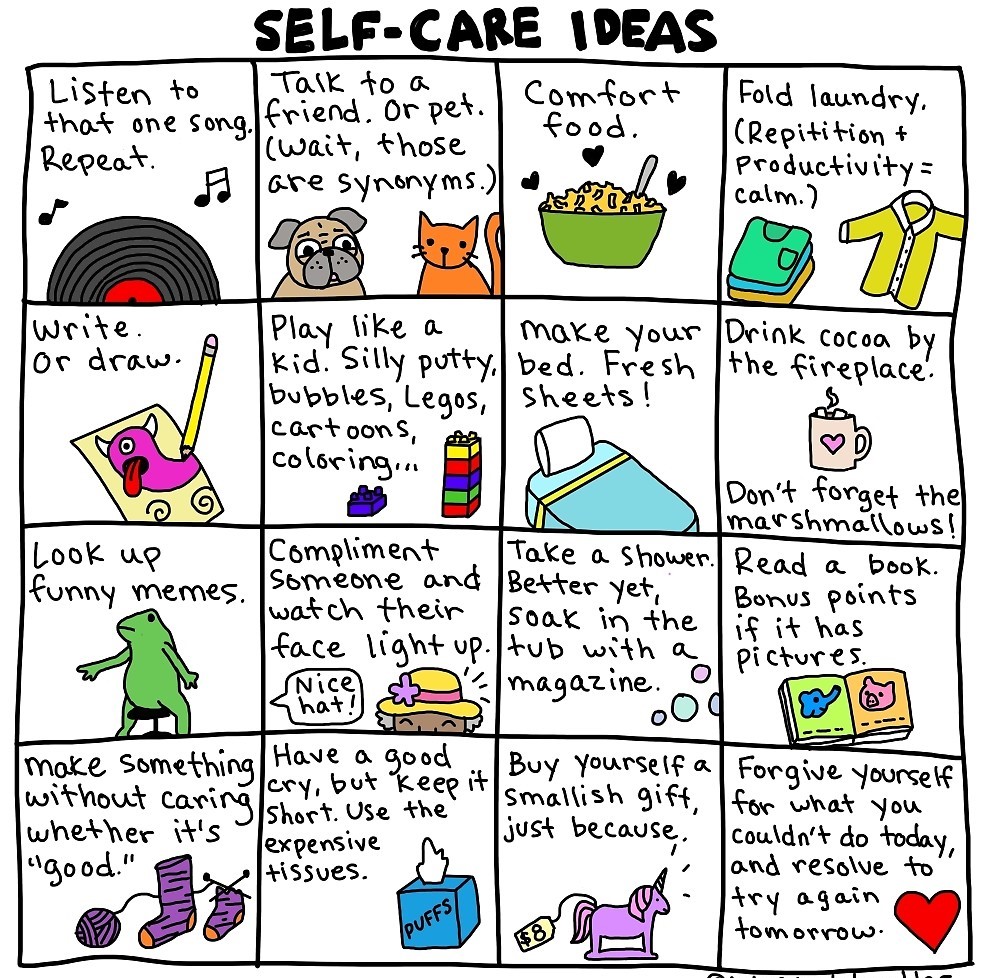 SELF-CARE IDEAS
Listen to
that one song.
Repeat.
Talk to a
friend. Or pet.
(wait, those
are synonyms.)
Comfort
food.
Fold laundry.
(Repitition +
Productivity =
calm.)
Write.
Or draw.
Play like a
kid. Silly putty,
bubbles, Legos,
cartoons,
coloring...
make your
bed. Fresh
sheets!
Drink cocoa by
the fireplace.
Don't forget the
marshmallows!
Look up
funny memes.
Compliment
someone and
watch their
face light up.
Nice
hat!
Take a shower.
Better yet,
soak in the
tub with a
magazine.
Read a book.
Bonus points
if it has
pictures.
make something
without caring
whether it's
"good."
Have a good
cry, but keep it
short. Use the
expensive
tissues.
PUFFS
Buy yourself a
smallish gift,
just because.
$8
Forgive yourself
for what you
couldn't do today,
and resolve to
try again
tomorrow.